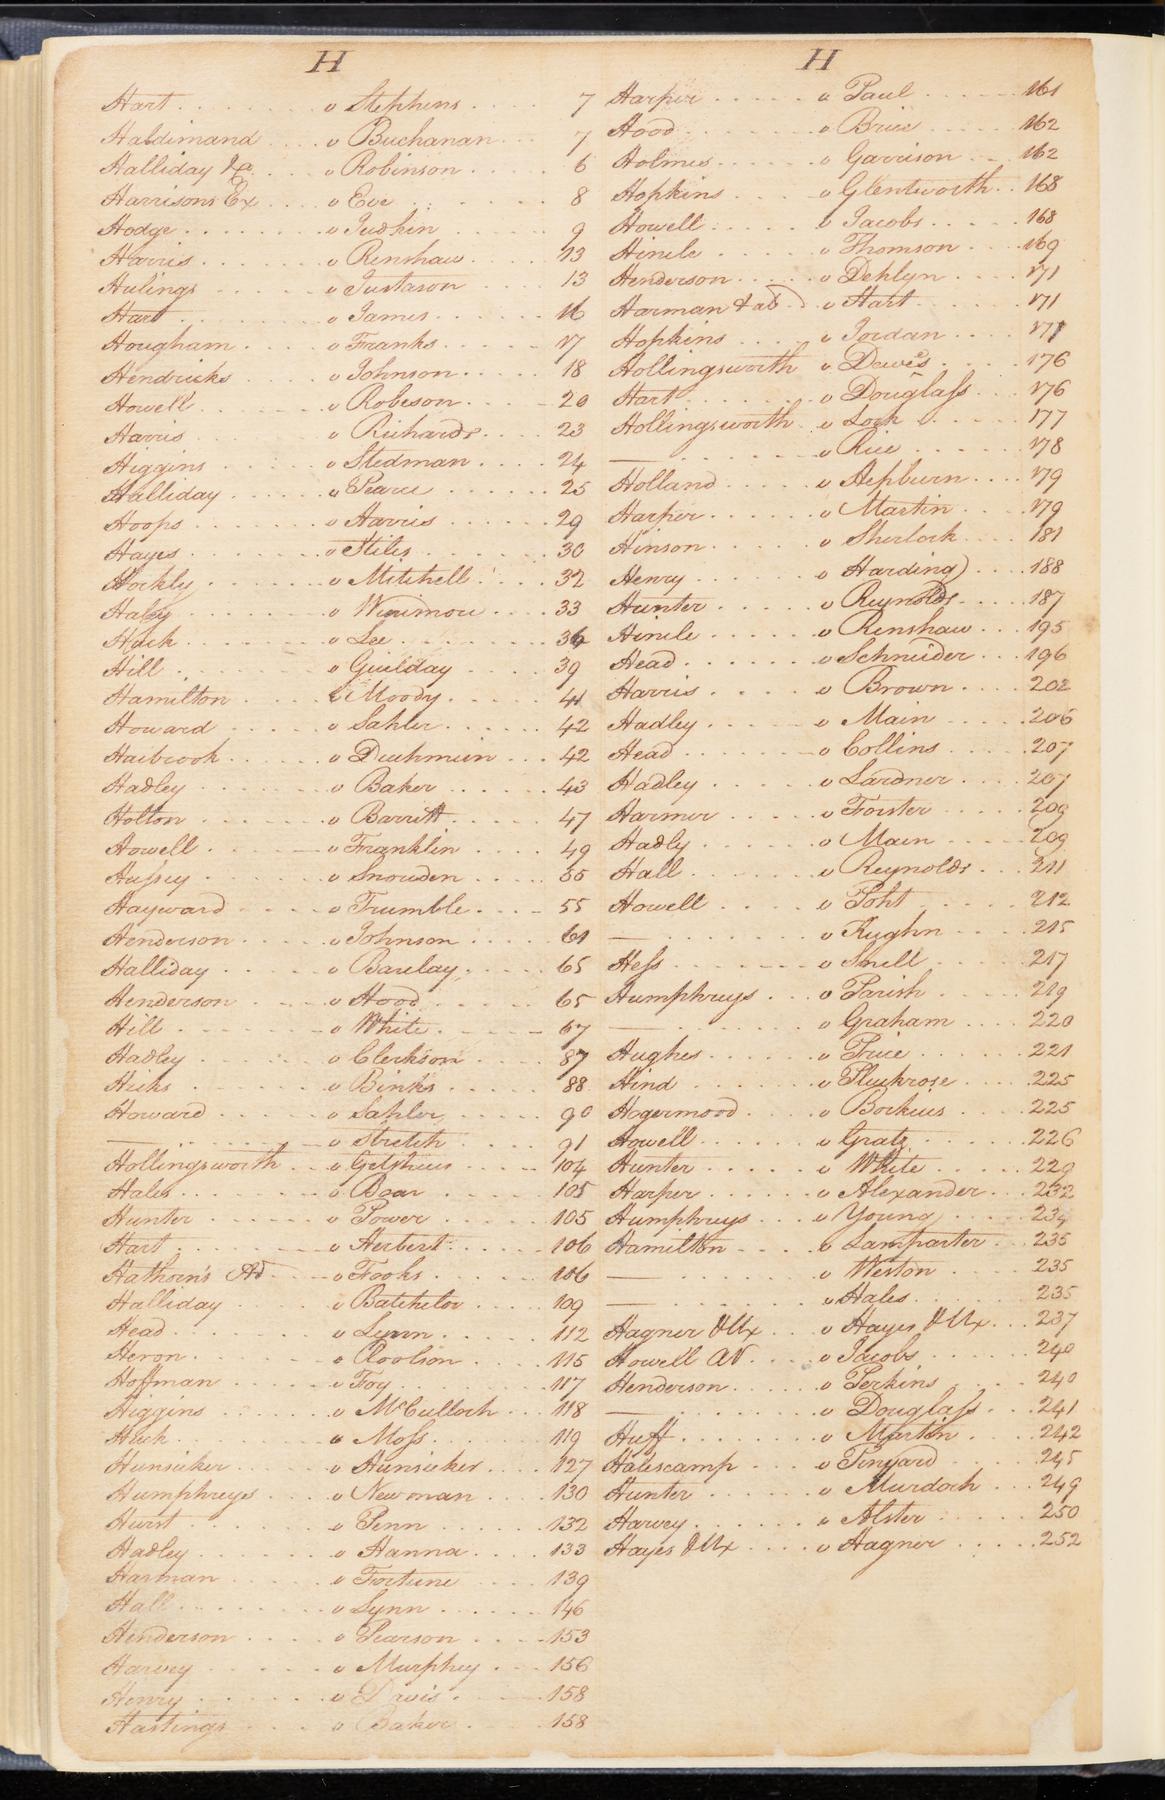 H
Hart . . . . v Stephens . . . . 7
Haldimand . . . . v Buchanan . . . . 7
Halliday &c . . . . v Robinson . . . . 6
Harrisons Ex . . . . v Eve . . . . 8
Hodge . . . . v Judhin . . . . 9
Harris . . . . v Renshaw . . . . 13
Hulings . . . . v Justason . . . . 13
Hart . . . . v James . . . . 16
Hougham . . . . v Franks . . . . 17
Hendricks . . . . v Johnson . . . . 18
Howell . . . . v Robeson . . . . 20
Harris . . . . v Richards . . . . 23
Higgins . . . . v Stedman . . . . 24
Halliday . . . . v Pearce . . . . 25
Hoops . . . . v Harris . . . . 29
Hayes . . . . v Stiles . . . . 30
Hockly . . . . v Mitchell . . . . 32
Haley . . . . v Winimore . . . . 33
Huck . . . . v Lee . . . . 36
Hill . . . . v Guilday . . . . 39
Hamilton . . . . v Moody . . . . 41
Howard . . . . v Sahler . . . . 42
Haibrook . . . . v Duchmein . . . . 42
Hadley . . . . v Baker . . . . 43
Holton . . . . v Barritt . . . . 47
Howell . . . . v Franklin . . . . 49
Hussey . . . . v Snowden . . . . 55
Hayward . . . . v Trumble . . . . 55
Henderson . . . . v Johnson . . . . 61
Halliday . . . . v Barclay . . . . 65
Henderson . . . . v Hood . . . . 65
Hill . . . . v White . . . . 67
Hadley . . . . v Clerkson . . . . 87
Hicks . . . . v Binks . . . . 88
Howard . . . . v Sahler . . . . 90
— . . . . v Stretch . . . . 91
Hollingsworth . . . . v . . . . 104
Hales . . . . v Boar . . . . 105
Hunter . . . . v Power . . . . 105
Hart . . . . v Herbert . . . . 106
Hathorn's Ad . . . . v Fooks . . . . 106
Halliday . . . . v Batchelor . . . . 109
Head . . . . v Lynn . . . . 112
Heron . . . . v Roolson . . . . 115
Hoffman . . . . v Foy . . . . 117
Higgins . . . . v McCulloch . . . . 118
Huck . . . . v Moss . . . . 119
Hunsicker . . . . v Hunsicker . . . . 127
Humphreys . . . . v Newman . . . . 130
Hurst . . . . v Penn . . . . 132
Hadley . . . . v Hanna . . . . 133
Harman . . . . v Fortune . . . . 139
Hall . . . . v Lynn . . . . 146
Henderson . . . . v Pearson . . . . 153
Harvey . . . . v Murphey . . . . 156
Henry . . . . v Davis . . . . 158
Hastings . . . . v Baker . . . . 158
H
Harper . . . . v Paul . . . . 161
Hood . . . . v Brice . . . . 162
Holmes . . . . v Garrison . . . . 162
Hopkins . . . . v Glentworth . . 168
Howell . . . . v Jacobs . . . . 168
Hinele . . . . v Thomson . . . . 169
Henderson . . . . v Dehlyn . . . . 171
Harman & al . . v Hart . . . . 171
Hopkins . . . . v Jordan . . . . 171
Hollingsworth v Dewes . . . . 176
Hart . . . . v Douglass . . . . 176
Hollingsworth . . v Lock . . . . 177
— . . . . v Rice . . . . 178
Holland . . . . v Hepburn . . . . 179
Harper . . . . v Martin . . . . 179
Hinson . . . . v Sherlock . . . . 181
Henry . . . . v Harding . . . . 188
Hunter . . . . v Reynolds . . . . 187
Hinele . . . . v Renshaw . . . . 195
Head . . . . v Schneider . . . . 196
Harris . . . . v Brown . . . . 202
Hadley . . . . v Main . . . . 206
Head . . . . v Collins . . . . 207
Hadley . . . . v Lardner . . . . 207
Harmer . . . . v Forster . . . . 208
Hadly . . . . v Main . . . . 209
Hall . . . . v Reynolds . . . . 211
Howell . . . . v Poht . . . . 212
— . . . . v Kughn . . . . 215
Hess . . . . v Snell . . . . 217
Humphreys . . . v Parish . . . . 219
— . . . . v Graham . . . . 220
Hughes . . . . v Price . . . . 221
Hind . . . . v Pluckrose . . . . 225
Hogermood . . . . v Borkius . . . . 225
Howell . . . . v Gratz . . . . 226
Hunter . . . . v White . . . . 229
Harper . . . . v Alexander . . . 232
Humphreys . . . v Young . . . . 234
Hamilton . . . . v Lamparter . . . 235
— . . . . v Weston . . . . 235
— . . . . v Hales . . . . 235
Hagner & Ux . . . v Hayes & Ux . . . 237
Howell . . . . v Jacobs . . . . 240
Henderson . . . . v Perkins . . . . 240
— . . . . v Douglass . . . 241
Huff . . . . v Martin . . . . 242
Halescamp . . . . v Tinyard . . . . 245
Hunter . . . . v Murdoch . . . 249
Harvey . . . . v Alster . . . . 250
Hayes & Ux . . . . v Hagner . . . . 252